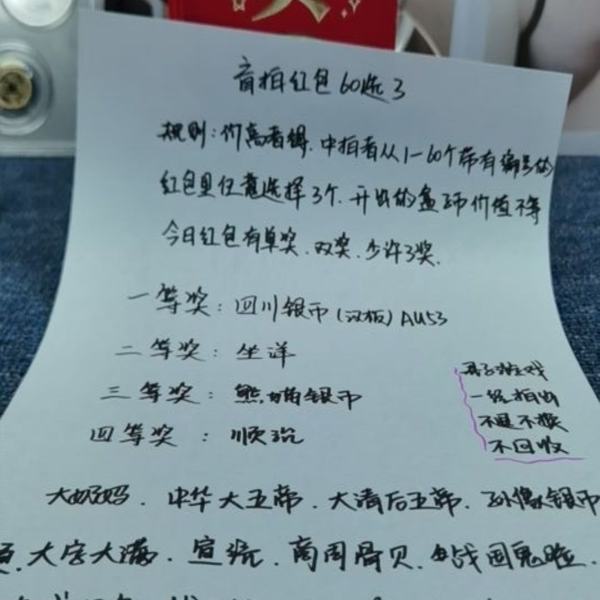 盲拍红包60选3
规则:价高者得.中拍者从1-60个带有编号的
红包里任意选择3个.开出的盒子币价值不等
今日红包有单奖.双奖.少许3奖.
一等奖:四川银币(汉板)AU53
二等奖:坐洋
三等奖:熊猫银币
四等奖:顺治
游戏
一经拍出
不退不换
不回收
大奶妈.中华大五帝.大清后五帝.孙像银币
大字大满.宣统.商周骨贝.战国鬼脸.